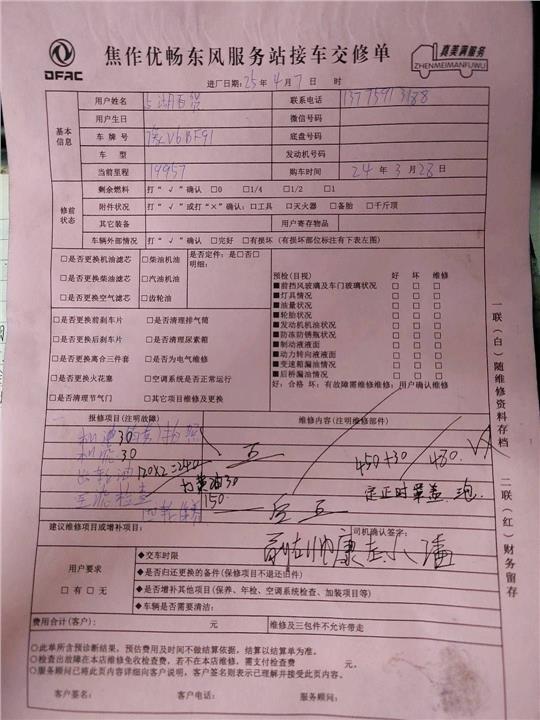 DFAC
焦作优畅东风服务站接车交修单
真美满服务
ZHENMEIMANFUWU
进厂日期:25年4月7日 时
基本信息
用户姓名 联系电话
用户生日 微信号码
车牌号 豫V6BF91 底盘号码
车型 发动机号码
当前里程 19957 购车时间 24年3月28日
修前状态
剩余燃料 打“√”确认 □0 □1/4 □1/2 □1
附件状况 打“√”或打“×”确认:□工具 □灭火器 □备胎 □千斤顶
其它装备 用户寄存物品
车辆外部情况 打“√”确认 □完好 □有损坏(有损部位标注有下表左图)
□是否更换机油滤芯 □柴油机油 是否定件:是□否□
□是否更换柴油滤芯 □汽油机油 明细:
□是否更换空气滤芯 □齿轮油
□是否更换前刹车片 □是否清理排气筒
□是否更换后刹车片 □是否清理尿素箱
□是否更换离合三件套 □是否为电气维修
□是否更换火花塞 □空调系统是否正常运行
□是否清理节气门 □其它项目维修及更换
预检(目视) 好 坏 维修
■前挡风玻璃及车门玻璃状况 □ □ □
■灯具情况 □ □ □
■油量状况 □ □ □
■轮胎状况 □ □ □
■发动机机油状况 □ □ □
■防冻防锈瓶状况 □ □ □
■制动液液面 □ □ □
■动力转向液液面 □ □ □
■变速箱漏油情况 □ □ □
■后桥漏油情况 □ □ □
好:合格 坏:有故障需维修维修:用户确认维修
报修项目(注明故障) 维修内容(注明维修部件)
30
机滤 30
齿轮油 120×2=240
打黄油30
全车检查
150
450+30 480.
建议维修项目或增补项目: 司机确认签字:
用户要求
□有 □无
◆交车时限
◆是否归还更换的备件(保修项目不退还旧件)
◆是否增补其他项目(保养、年检、空调系统检查、加装项目等)
◆车辆是否需要清洁:
费用合计(客户): 元 维修及三包件不允许带走
○此单所含预诊断结果,预估费用及时间不做结算依据,结算以结算单为准。
○检查出故障在本店维修免收检查费,若不在本店维修,需支付检查费 元。
○服务顾问已将此页内容详细向客户说明,客户签名则表示已理解并接受此页内容。
客户签名: 客户电话: 服务顾问:
一联(白)随维修资料存档
二联(红)财务留存